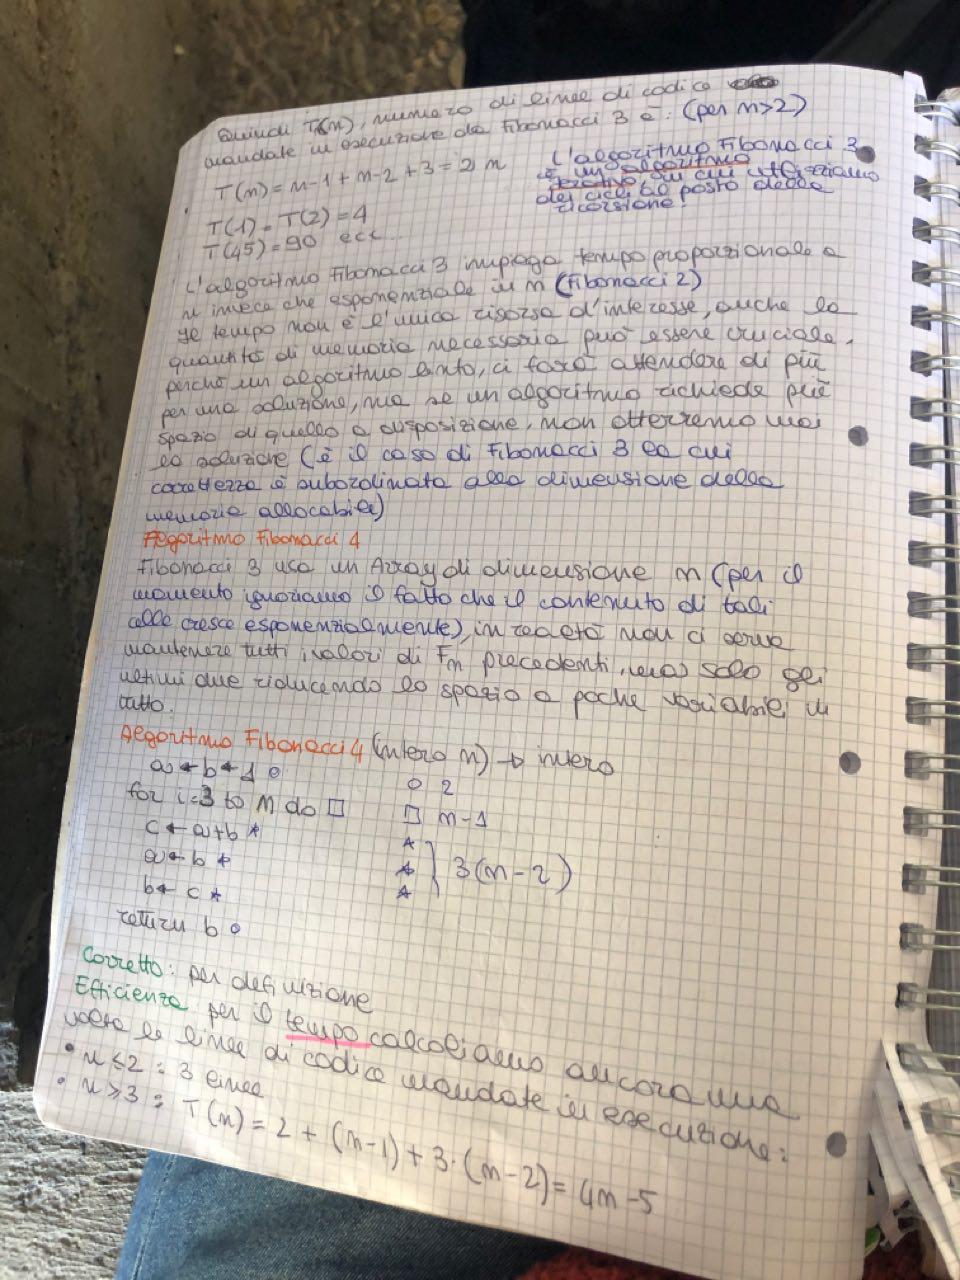 Quindi T(n), numero di linee di codice
mandate in esecuzione da Fibonacci 3 è: (per n>2)
T(n) = n-1+n-2+3 = 2n
L'algoritmo Fibonacci 3
è un algoritmo
iterativo in cui utilizziamo
dei cicli al posto della
ricorsione!
T(1) = T(2) = 4
T(45) = 90 ecc...
L'algoritmo Fibonacci 3 impiega tempo proporzionale a
n invece che esponenziale in n (Fibonacci 2)
Il tempo non è l'unica risorsa d'interesse, anche la
quantità di memoria necessaria può essere cruciale,
perché un algoritmo lento, ci farà attendere di più
per una soluzione, ma se un algoritmo richiede più
spazio di quello a disposizione, non otterremo mai
la soluzione (è il caso di Fibonacci 3 la cui
correttezza è subordinata alla dimensione della
memoria allocabile)
Algoritmo Fibonacci 4
Fibonacci 3 usa un Array di dimensione n (per il
momento ignoriamo il fatto che il contenuto di tali
celle cresce esponenzialmente), in realtà non ci serve
mantenere tutti i valori di Fn precedenti, ma solo gli
ultimi due riducendo lo spazio a poche variabili in
tutto.
Algoritmo Fibonacci 4 (intero n) → intero
a ← b ← 1 o
o 2
for i=3 to n do □
□ n-1
c ← a+b *
*
a ← b *
* } 3(n-2)
b ← c *
*
return b o
Corretto: per definizione
Efficienza per il tempo calcoliamo ancora una
volta le linee di codice mandate in esecuzione:
• n ≤ 2 : 3 linee
• n ≥ 3 : T(n) = 2 + (n-1) + 3·(n-2) = 4n-5